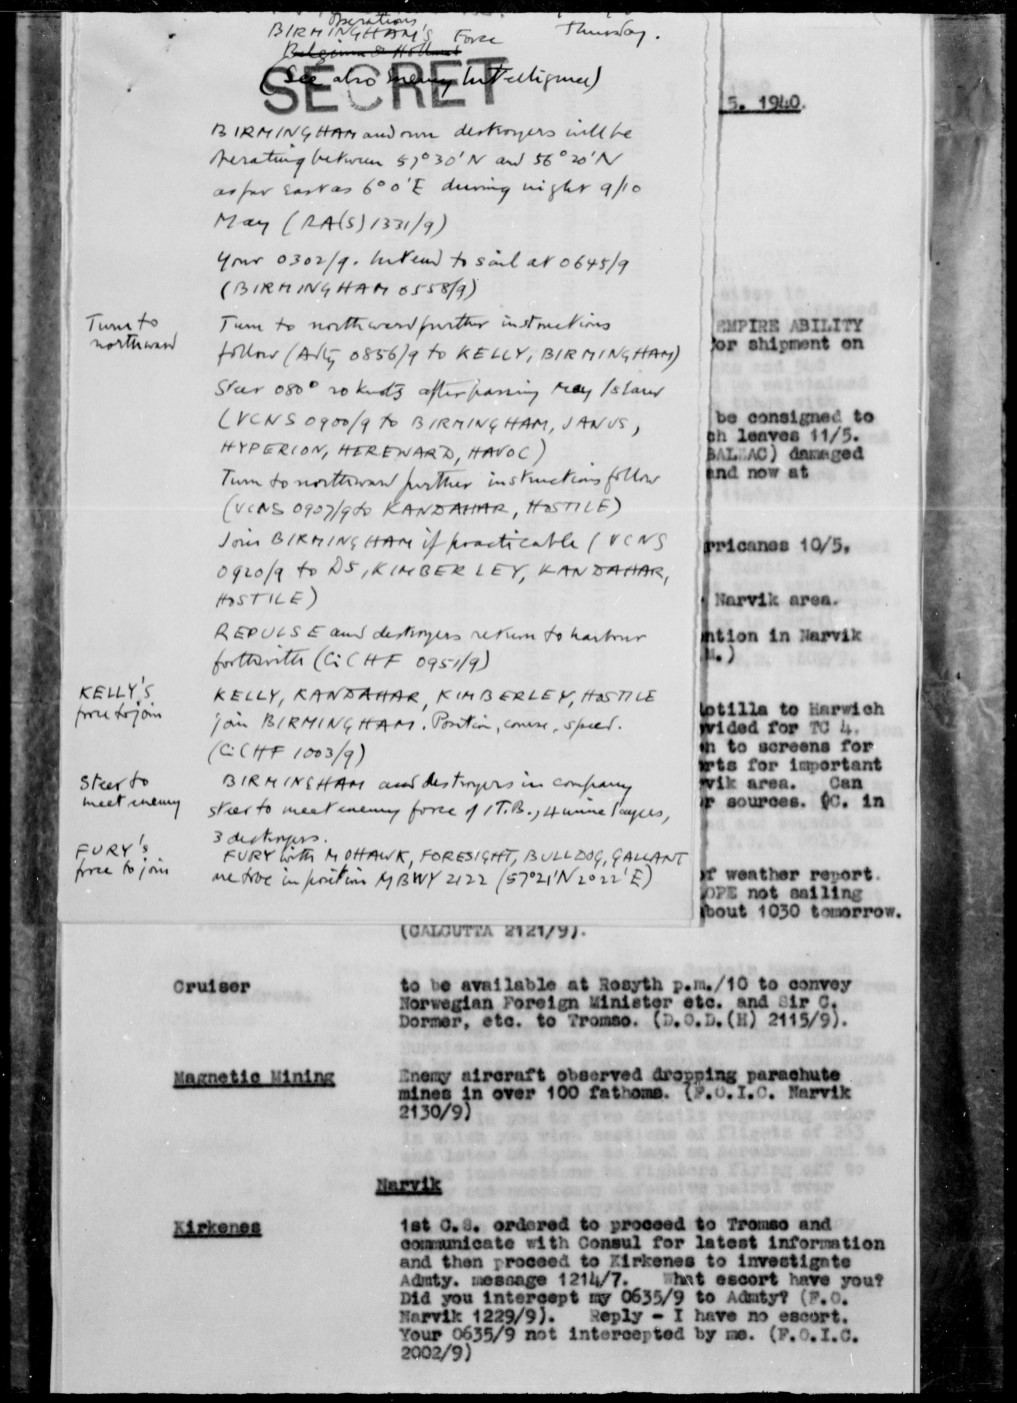 Operations,
BIRMINGHAM's Force Thursday.
Belgium & Holland
(See also Enemy Intelligence)
SECRET
5. 1940.
BIRMINGHAM and destroyers will be
operating between 57°30'N and 56°20'N
as far East as 6°0'E during night 9/10
May (RA(S) 1331/9)
Your 0302/9. Intend to sail at 0645/9
(BIRMINGHAM 0558/9)
Turn to
northward
Turn to northward further instructions
follow (Adty 0856/9 to KELLY, BIRMINGHAM)
Steer 080° 20 knots after passing May Island
(VCNS 0900/9 to BIRMINGHAM, JANUS,
HYPERION, HEREWARD, HAVOC)
Turn to northward further instructions follow
(VCNS 0907/9 to KANDAHAR, HOSTILE)
Join BIRMINGHAM if practicable (VCNS
0920/9 to D5, KIMBERLEY, KANDAHAR,
HOSTILE)
REPULSE and destroyers return to harbour
forthwith (CinCHF 0951/9)
KELLY's
force to join
KELLY, KANDAHAR, KIMBERLEY, HOSTILE
join BIRMINGHAM. Position, course, speed.
(CinCHF 1003/9)
Steer to
meet enemy
BIRMINGHAM and destroyers in company
steer to meet enemy force of 1 T.B., 4 mine layers,
3 destroyers.
FURY's
force to join
FURY with MOHAWK, FORESIGHT, BULLDOG, GALLANT
are to be in position MBWY 2122 (57°21'N 2°22'E)
EMPIRE ABILITY
or shipment on
be consigned to
ch leaves 11/5.
BALZAC) damaged
and now at
rricanes 10/5.
Narvik area.
ntion in Narvik
M.)
lotilla to Harwich
vided for TC 4.
h to screens for
rts for important
vik area. Can
r sources. (C. in
of weather report.
OPE not sailing
bout 1030 tomorrow.
(CALCUTTA 2121/9).
Cruiser
to be available at Rosyth p.m./10 to convey
Norwegian Foreign Minister etc. and Sir C.
Dormer, etc. to Tromso. (D.O.D.(H) 2115/9).
Magnetic Mining
Enemy aircraft observed dropping parachute
mines in over 100 fathoms. (F.O.I.C. Narvik
2130/9)
Narvik
Kirkenes
1st C.S. ordered to proceed to Tromso and
communicate with Consul for latest information
and then proceed to Kirkenes to investigate
Admty. message 1214/7. What escort have you?
Did you intercept my 0635/9 to Admty? (F.O.
Narvik 1229/9). Reply - I have no escort.
Your 0635/9 not intercepted by me. (F.O.I.C.
2002/9)